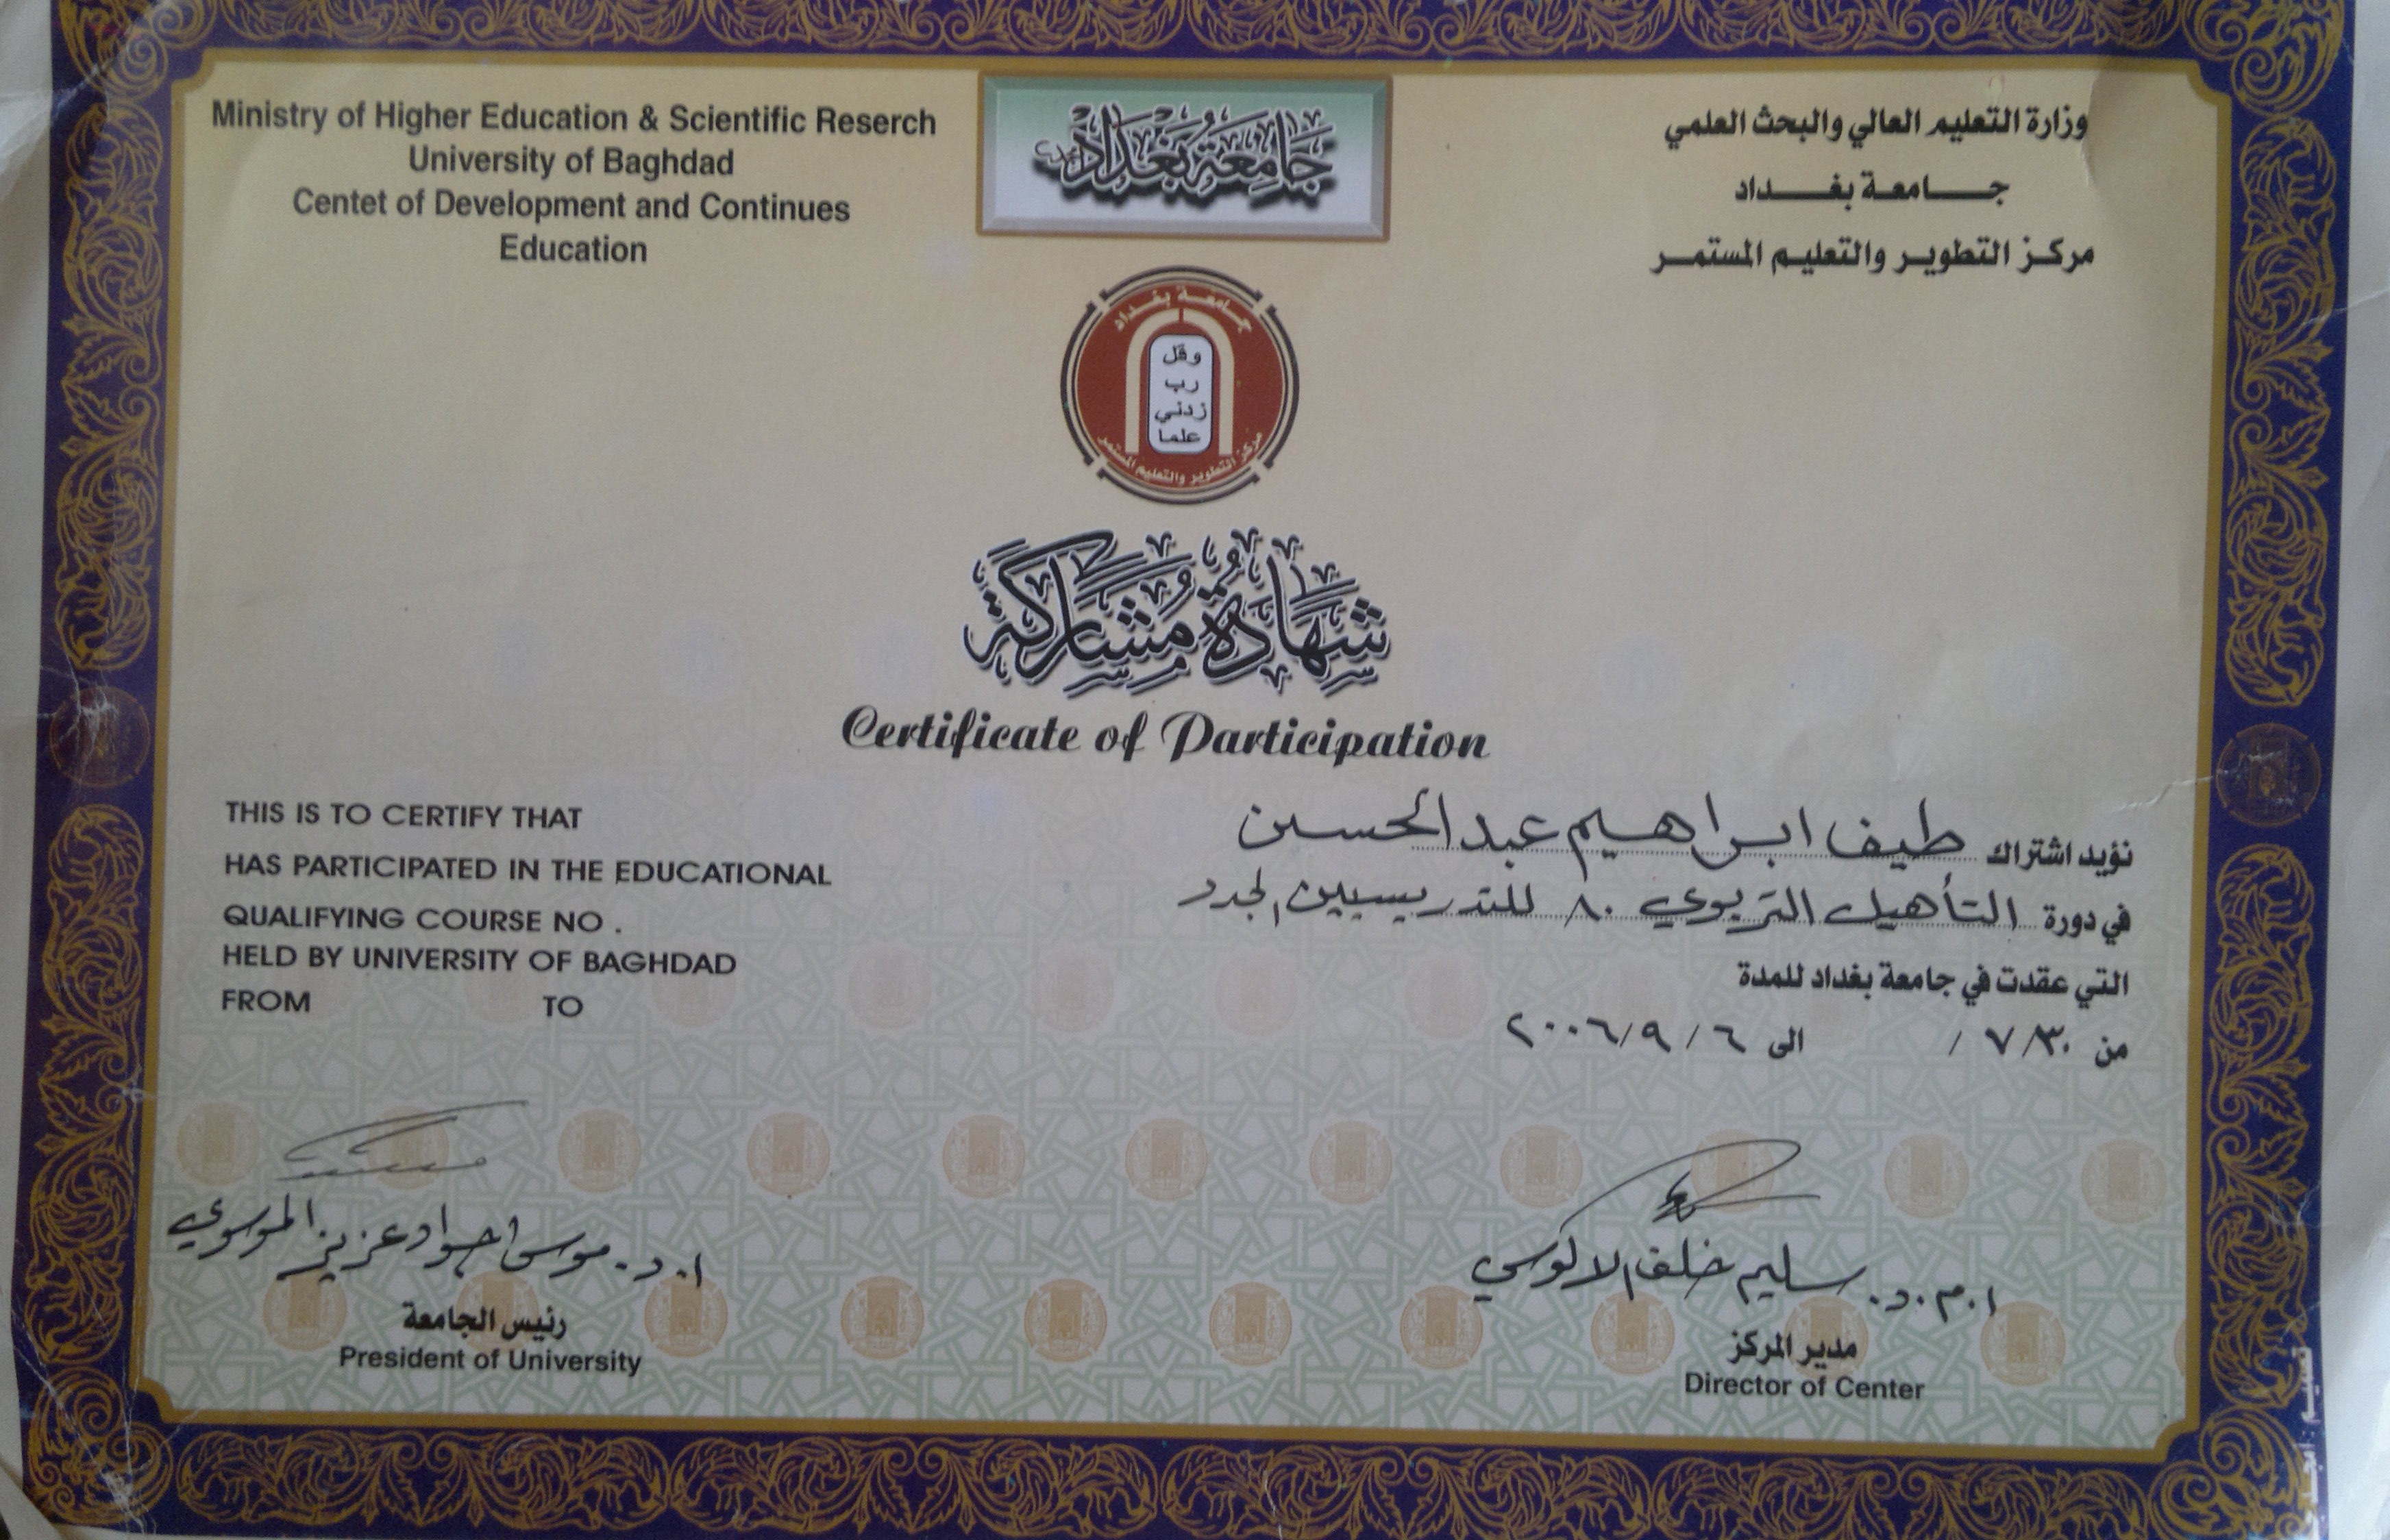 Ministry of Higher Education & Scientific Reserch
University of Baghdad
Centet of Development and Continues
Education
جامعة بغداد
وزارة التعليم العالي والبحث العلمي
جامعة بغداد
مركز التطوير والتعليم المستمر
جامعة بغداد
وقل
رب
زدني
علما
مركز التطوير والتعليم المستمر
شهادة مشاركة
Certificate of Participation
THIS IS TO CERTIFY THAT
HAS PARTICIPATED IN THE EDUCATIONAL
QUALIFYING COURSE NO .
HELD BY UNIVERSITY OF BAGHDAD
FROM TO
نؤيد اشتراك طيف ابراهيم عبد الحسين
في دورة التأهيل التربوي ٨٠ للتدريسيين الجدد
التي عقدت في جامعة بغداد للمدة
من ٧/٣٠ / الى ٢٠٠٦/٩/٦
ا.د. موسى جواد عزيز الموسوي
رئيس الجامعة
President of University
ا.م.د. سليم خلف الالوسي
مدير المركز
Director of Center